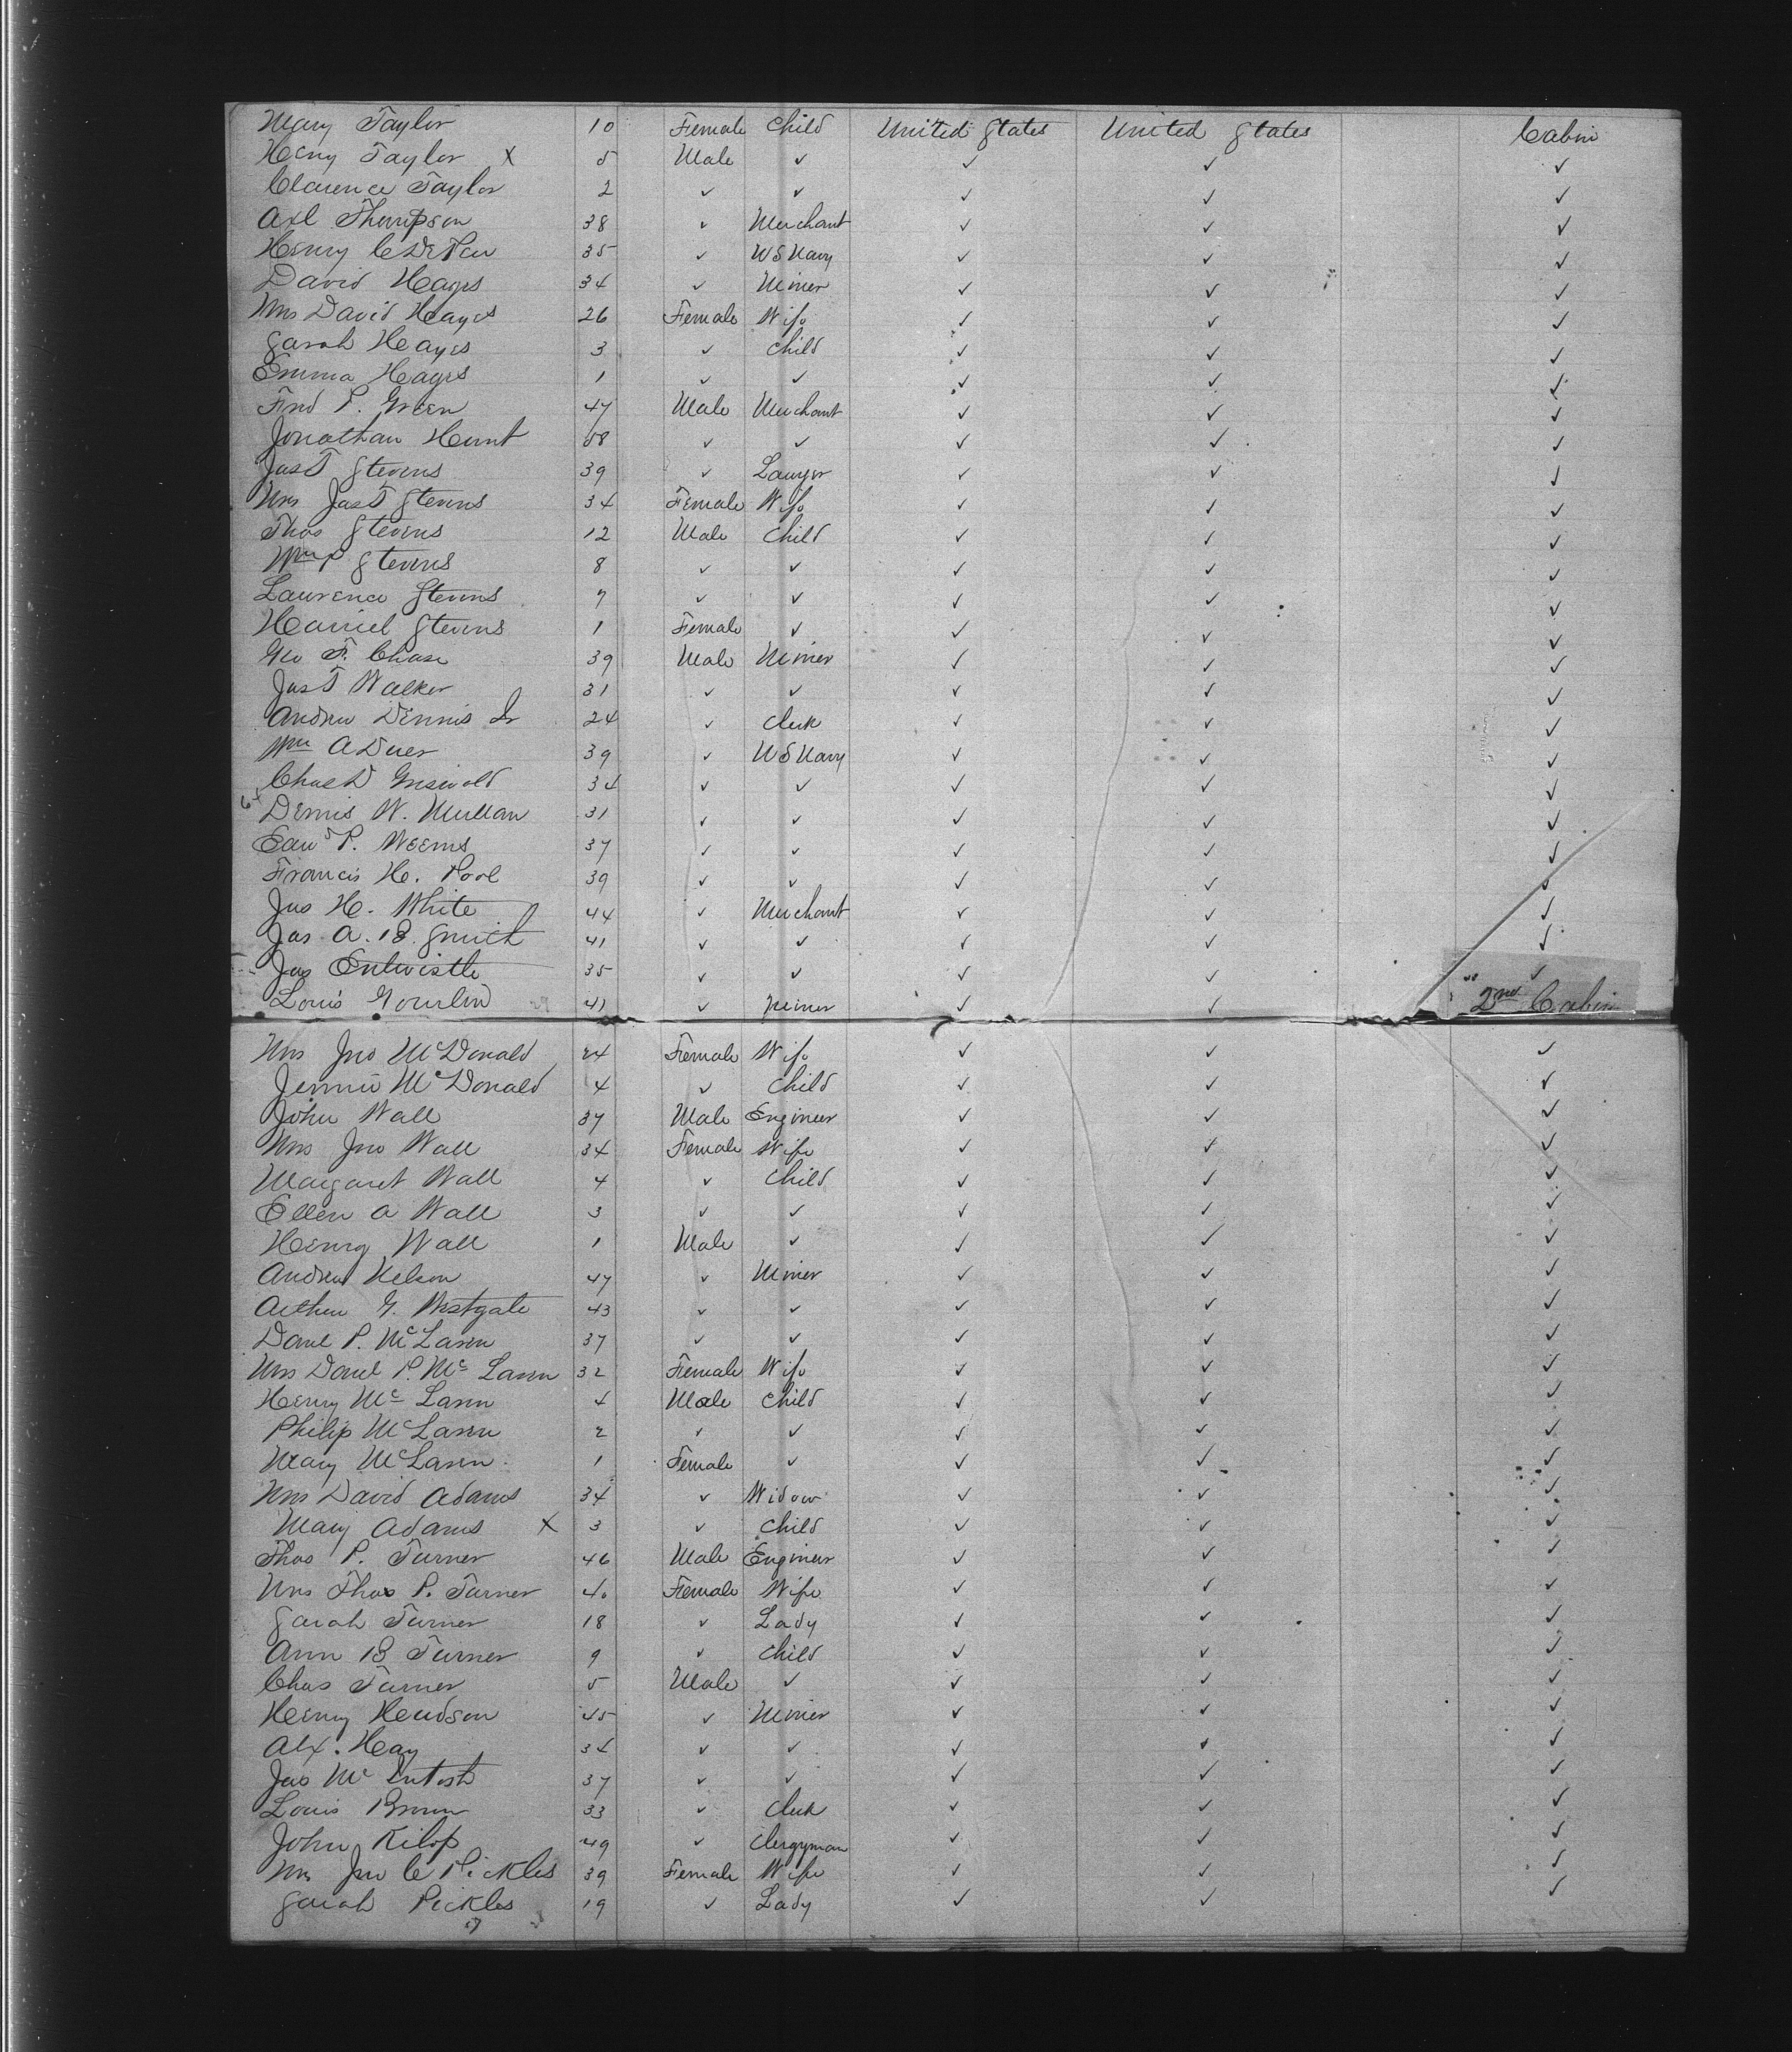 Mary Taylor 10 Female Child United States United States Cabin
Heny Taylor X 5 Male ✓ ✓ ✓ ✓
Clarence Taylor 2 ✓ ✓ ✓ ✓ ✓
Axl Thompson 38 ✓ Merchant ✓ ✓ ✓
Henry C 35 ✓ U S Navy ✓ ✓ ✓
David Hayes 34 ✓ Miner ✓ ✓ ✓
Mrs David Hayes 26 Female Wife ✓ ✓ ✓
Sarah Hayes 3 ✓ Child ✓ ✓ ✓
Emma Hayes 1 ✓ ✓ ✓ ✓ ✓
Fred P. Green 47 Male Merchant ✓ ✓ ✓
Jonathan Hunt 58 ✓ ✓ ✓ ✓ ✓
Jas T Stevens 39 ✓ Lawyer ✓ ✓ ✓
Mrs Jas T Stevens 34 Female Wife ✓ ✓ ✓
Thos Stevens 12 Male Child ✓ ✓ ✓
Wm P Stevens 8 ✓ ✓ ✓ ✓ ✓
Laurence Stevens 7 ✓ ✓ ✓ ✓ ✓
Harriet Stevens 1 Female ✓ ✓ ✓ ✓
Geo F. Chase 39 Male Miner ✓ ✓ ✓
Jas T Walker 31 ✓ ✓ ✓ ✓ ✓
Andrew Dennis Jr 24 ✓ Clerk ✓ ✓ ✓
Wm A Duer 39 ✓ U S Navy ✓ ✓ ✓
Chas D Griswold 34 ✓ ✓ ✓ ✓ ✓
Dennis W. Mullan 31 ✓ ✓ ✓ ✓ ✓
Edwd P. Weems 37 ✓ ✓ ✓ ✓ ✓
Francis H. Pool 39 ✓ ✓ ✓ ✓ ✓
Jas H. White 44 ✓ Merchant ✓ ✓ ✓
Jas A. B. Smith 41 ✓ ✓ ✓ ✓ ✓
Jas Entwistle 35 ✓ ✓ ✓ ✓ ✓
Louis Gourlin 41 ✓ Miner ✓ ✓ 2nd Cabin
Mrs Jno McDonald 24 Female Wife ✓ ✓ ✓
Jennie McDonald 4 ✓ Child ✓ ✓ ✓
John Wall 37 Male Engineer ✓ ✓ ✓
Mrs Jno Wall 34 Female Wife ✓ ✓ ✓
Margaret Wall 4 ✓ Child ✓ ✓ ✓
Ellen A Wall 3 ✓ ✓ ✓ ✓ ✓
Henry Wall 1 Male ✓ ✓ ✓ ✓
Andrew Nelson 47 ✓ Miner ✓ ✓ ✓
Arthur G. Westgate 43 ✓ ✓ ✓ ✓ ✓
Danl P. McLaren 37 ✓ ✓ ✓ ✓ ✓
Mrs Danl P. McLaren 32 Female Wife ✓ ✓ ✓
Henry McLaren 4 Male Child ✓ ✓ ✓
Philip McLaren 2 ✓ ✓ ✓ ✓ ✓
Mary McLaren 1 Female ✓ ✓ ✓ ✓
Mrs David Adams 34 ✓ Widow ✓ ✓ ✓
Mary Adams X 3 ✓ Child ✓ ✓ ✓
Thos P. Turner 46 Male Engineer ✓ ✓ ✓
Mrs Thos P. Turner 40 Female Wife ✓ ✓ ✓
Sarah Turner 18 ✓ Lady ✓ ✓ ✓
Ann B Turner 9 ✓ Child ✓ ✓ ✓
Chas Turner 5 Male ✓ ✓ ✓ ✓
Henry Hudson 45 ✓ Miner ✓ ✓ ✓
Alx. Hay 34 ✓ ✓ ✓ ✓ ✓
Jas McIntosh 37 ✓ ✓ ✓ ✓ ✓
Louis Brown 33 ✓ Clerk ✓ ✓ ✓
John Kilop 49 ✓ Clergyman ✓ ✓ ✓
Mrs Jno C Pickles 39 Female Wife ✓ ✓ ✓
Sarah Pickles 19 ✓ Lady ✓ ✓ ✓